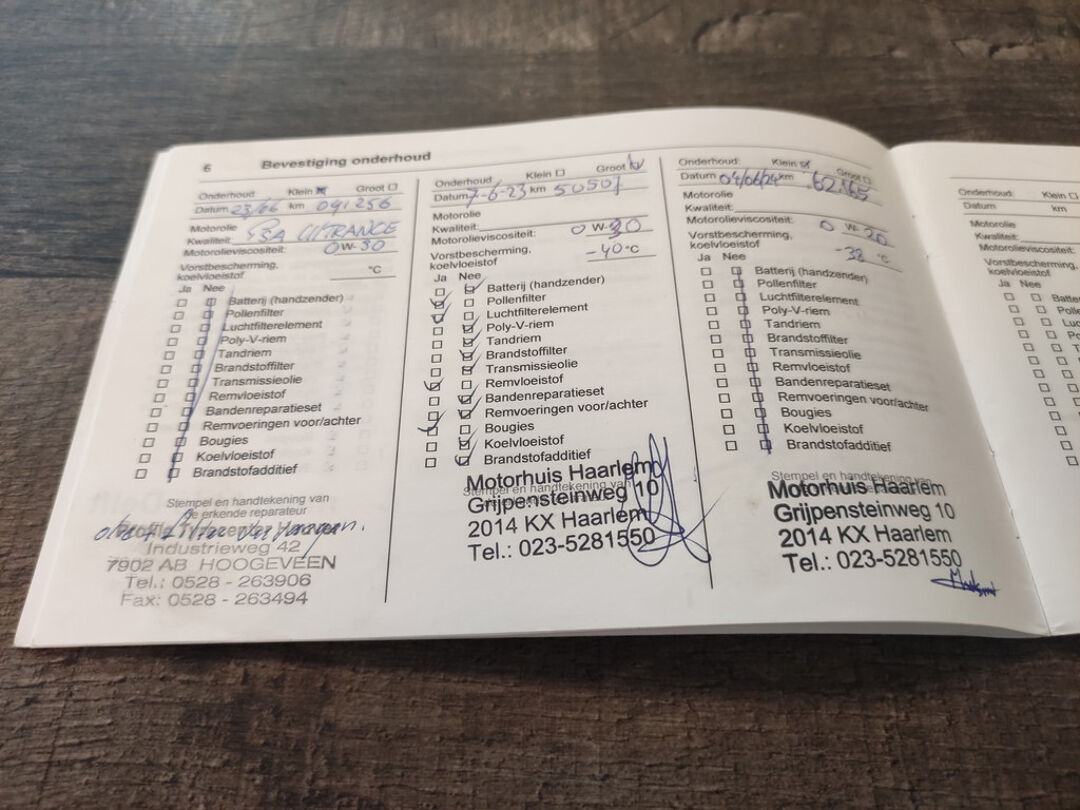 6 Bevestiging onderhoud
Onderhoud: Klein Groot
Datum 23/06 km 091256
Motorolie
Kwaliteit:
Motorolieviscositeit: 0W-30
Vorstbescherming,
koelvloeistof °C
Ja Nee
Batterij (handzender)
Pollenfilter
Luchtfilterelement
Poly-V-riem
Tandriem
Brandstoffilter
Transmissieolie
Remvloeistof
Bandenreparatieset
Remvoeringen voor/achter
Bougies
Koelvloeistof
Brandstofadditief
Stempel en handtekening van
de erkende reparateur
Industrieweg 42
7902 AB HOOGEVEEN
Tel.: 0528 - 263906
Fax: 0528 - 263494
Onderhoud: Klein Groot
Datum 7-6-23 km 50507
Motorolie
Kwaliteit:
Motorolieviscositeit: 0 W-30
Vorstbescherming,
koelvloeistof -40 °C
Ja Nee
Batterij (handzender)
Pollenfilter
Luchtfilterelement
Poly-V-riem
Tandriem
Brandstoffilter
Transmissieolie
Remvloeistof
Bandenreparatieset
Remvoeringen voor/achter
Bougies
Koelvloeistof
Brandstofadditief
Stempel en handtekening van
Motorhuis Haarlem
Grijpensteinweg 10
2014 KX Haarlem
Tel.: 023-5281550
Onderhoud: Klein Groot
Datum 04/06/24 km 62165
Motorolie
Kwaliteit:
Motorolieviscositeit: 0 W-20
Vorstbescherming,
koelvloeistof -38 °C
Ja Nee
Batterij (handzender)
Pollenfilter
Luchtfilterelement
Poly-V-riem
Tandriem
Brandstoffilter
Transmissieolie
Remvloeistof
Bandenreparatieset
Remvoeringen voor/achter
Bougies
Koelvloeistof
Brandstofadditief
Stempel en handtekening van
Motorhuis Haarlem
Grijpensteinweg 10
2014 KX Haarlem
Tel.: 023-5281550
Onderhoud: Klein
Datum km
Motorolie
Kwaliteit:
Motorolieviscositeit:
Vorstbescherming,
koelvloeistof
Ja Nee